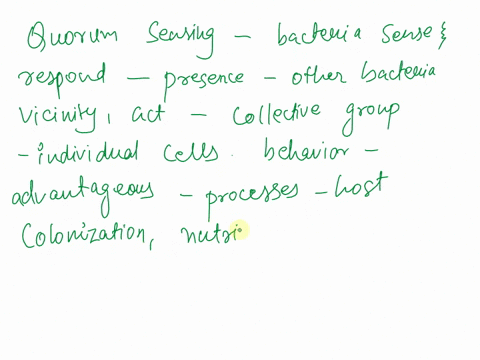 Quorum Sensing - bacteria sense &
respond - presence - other bacteria
vicinity, act - collective group
- individual cells. behavior -
advantageous - processes - host
Colonization, nutri